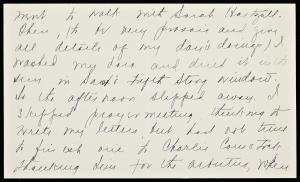 went to walk with Sarah
Then, (to be very prosaic and give
all details of my day's doings) I
washed my hair and dried it in the
sun in Sam's Fifth Story window.
So the afternoon slipped away. I
skipped prayer meeting thinking to
write my letters, but had not time
to finish one to Charles
thanking him for the arbutus, when